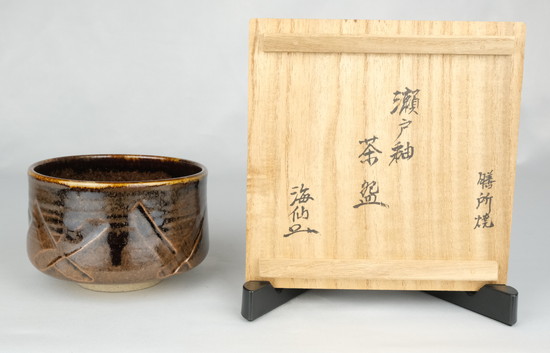 膳所焼
瀬戸釉
茶盌
海仙